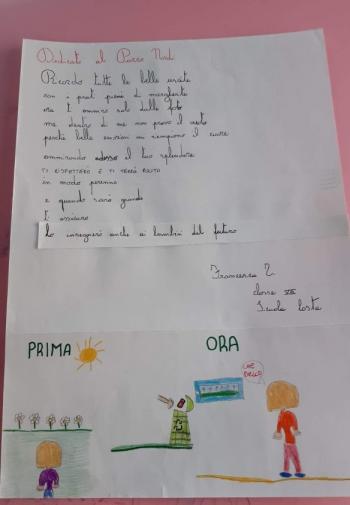 Dedicata al Parco Nord
Ricordo tutte le belle uscite
con i prati pieni di margherite
ora ti ammiro solo dalle foto
ma dentro di me non provo il vuoto
perché belle emozioni mi riempiono il cuore
ammirando adesso il tuo splendore
TI RISPETTERÒ E TI TERRÒ PULITO
in modo perenne
e quando sarò grande
T' assicuro
Lo insegnerò anche ai bambini del futuro
Francesca Z.
classe
Scuola Costa
PRIMA
ORA
CHE BELLO